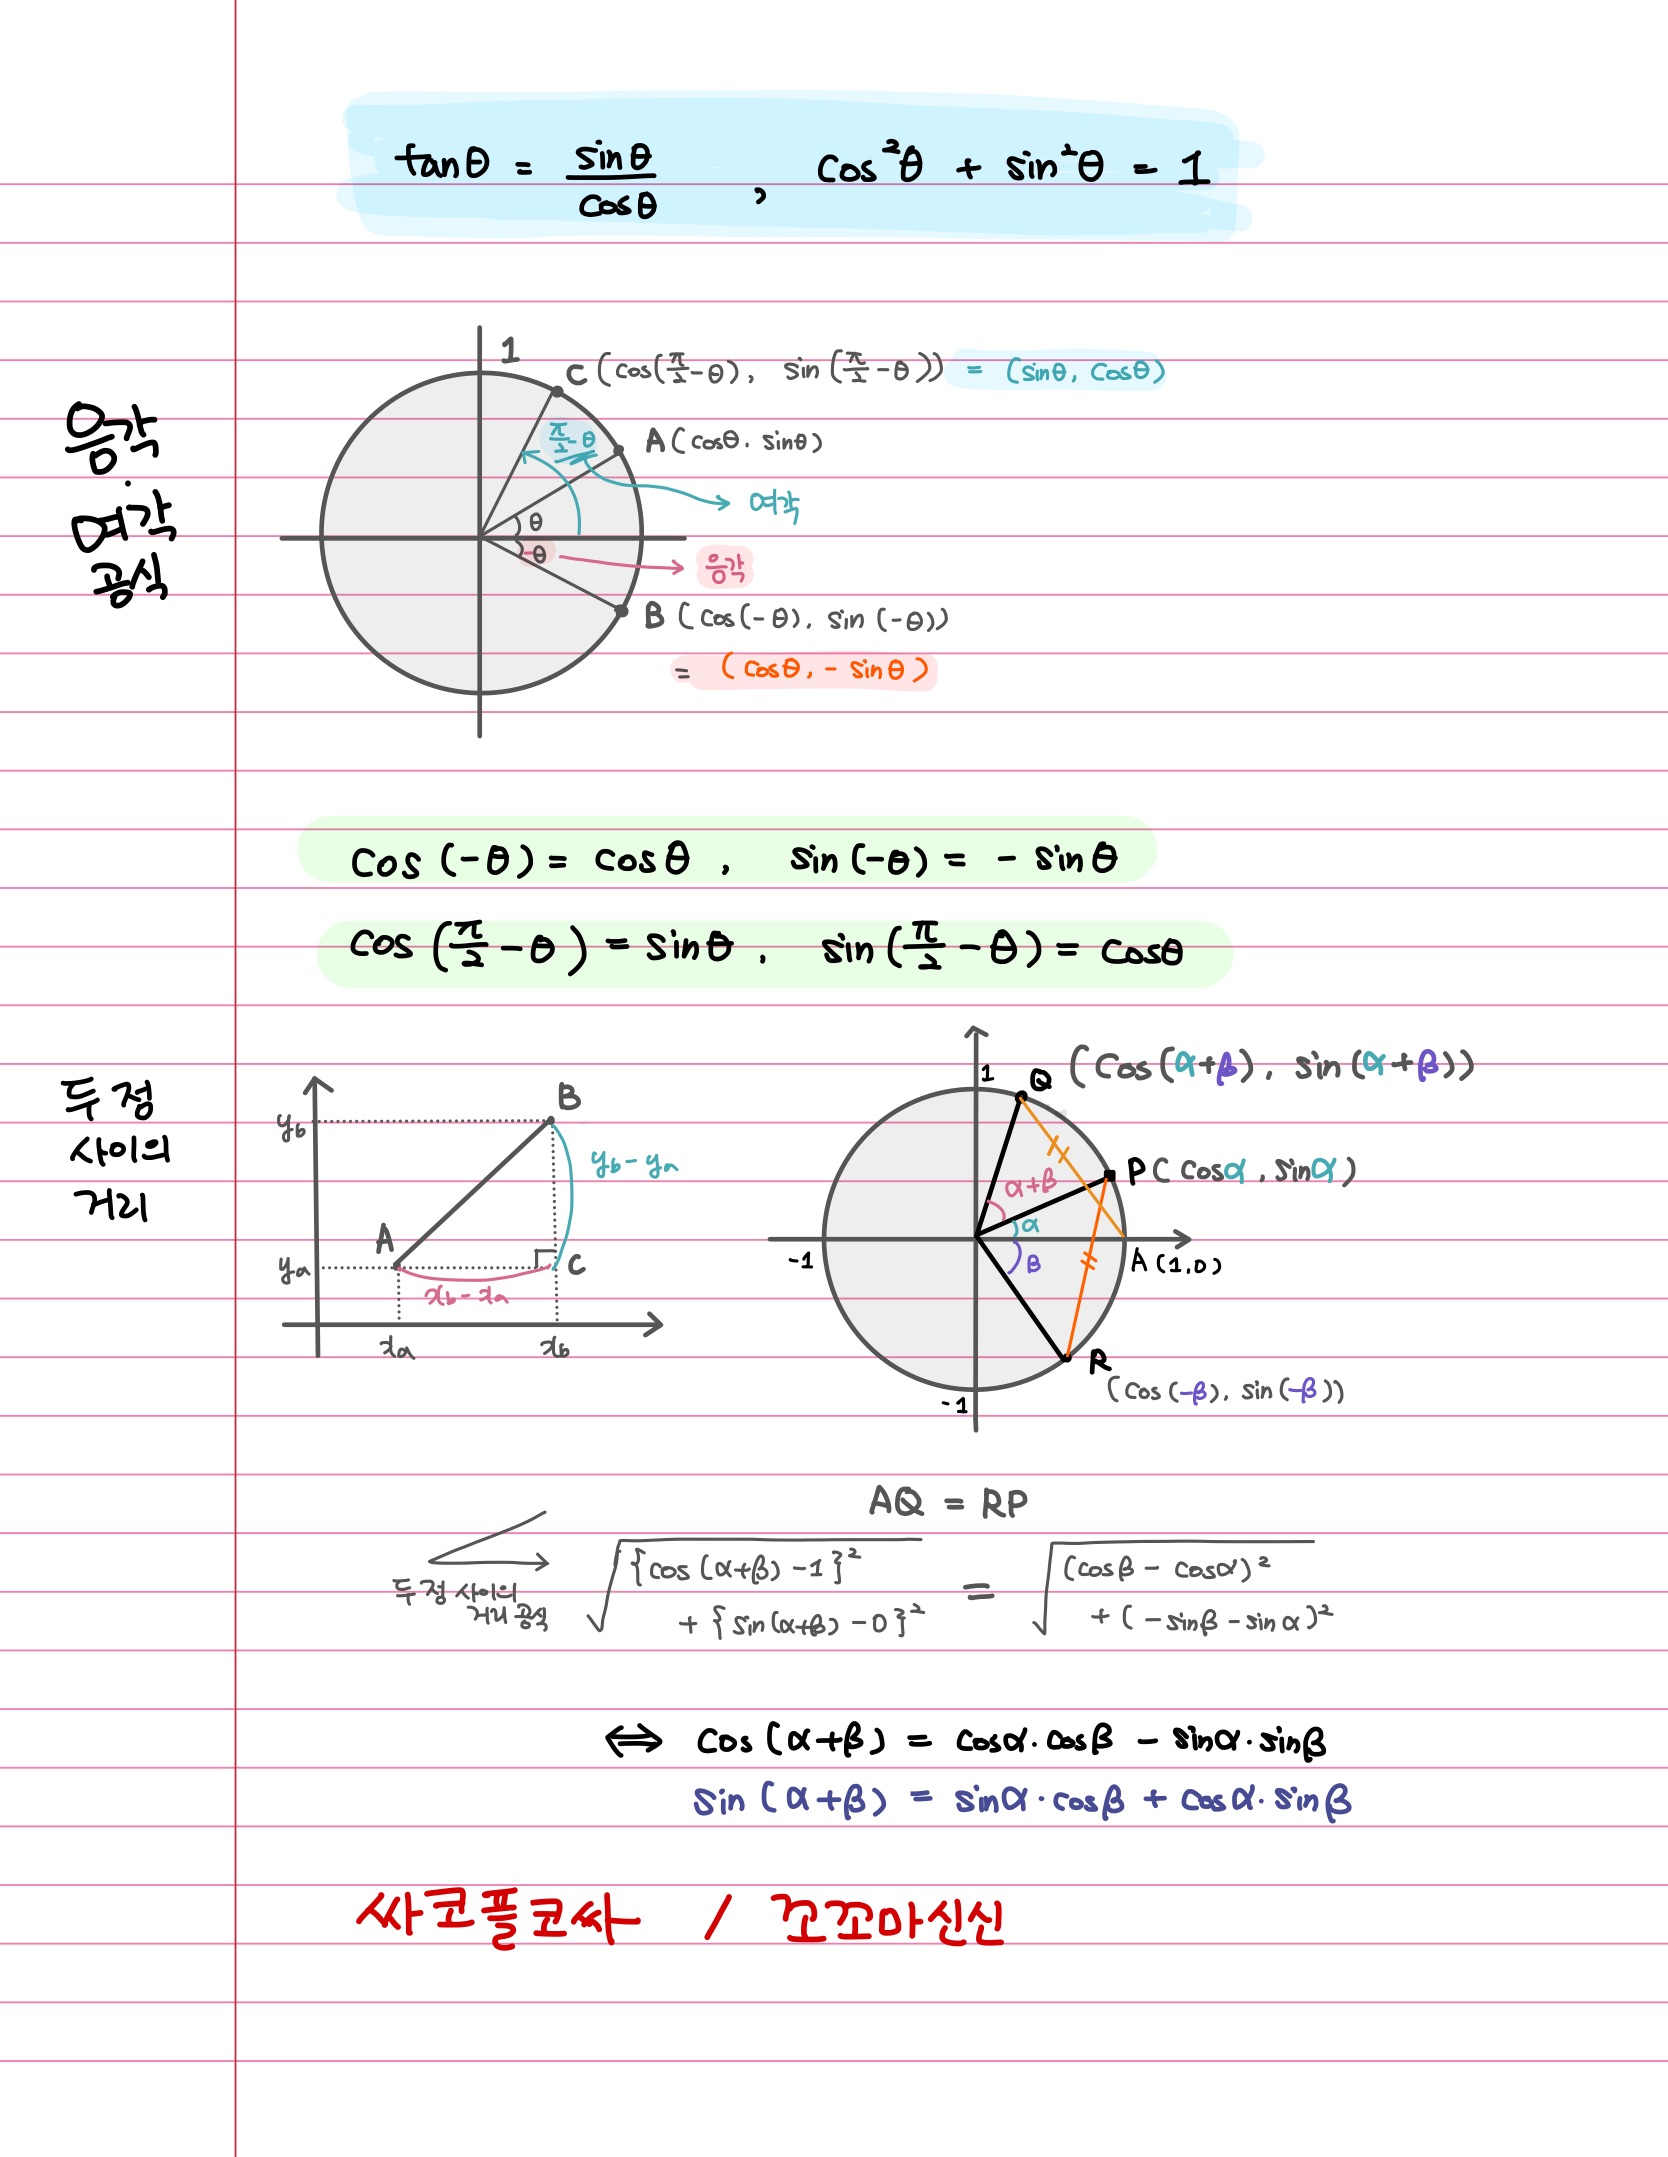 tanθ = sinθ/cosθ , cos²θ + sin²θ = 1
음각
·
여각
공식
1
C (cos(π/2-θ), sin(π/2-θ)) = (sinθ, cosθ)
π/2-θ
A(cosθ. sinθ)
여각
θ
-θ
음각
B (cos(-θ), sin(-θ))
= (cosθ, - sinθ)
cos(-θ) = cosθ , sin(-θ) = - sinθ
cos(π/2-θ) = sinθ, sin(π/2-θ) = cosθ
두 점
사이의
거리
B
y_b
y_b-y_a
A
y_a
C
x_b-x_a
x_a
x_b
1
Q (cos(α+β), sin(α+β))
P(cosα, sinα)
α+β
α
β
-1
A(1,0)
R
(cos(-β), sin(-β))
-1
AQ = RP
두 점 사이의
거리 공식
√{cos(α+β)-1}² + {sin(α+β)-0}² = √(cosβ-cosα)² + (-sinβ-sinα)²
⇔ cos(α+β) = cosα·cosβ - sinα·sinβ
sin(α+β) = sinα·cosβ + cosα·sinβ
싸코플코싸 / 꼬꼬마신신